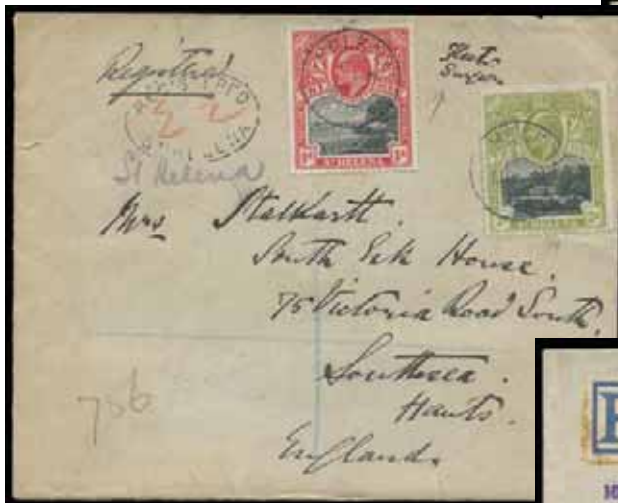 Registered
REGISTERED
ST HELENA
St Helena
ST HELENA
1d 1d
Mrs Stalkartt.
South Esk House.
75 Victoria Road South,
Southsea.
Hants.
England.
756